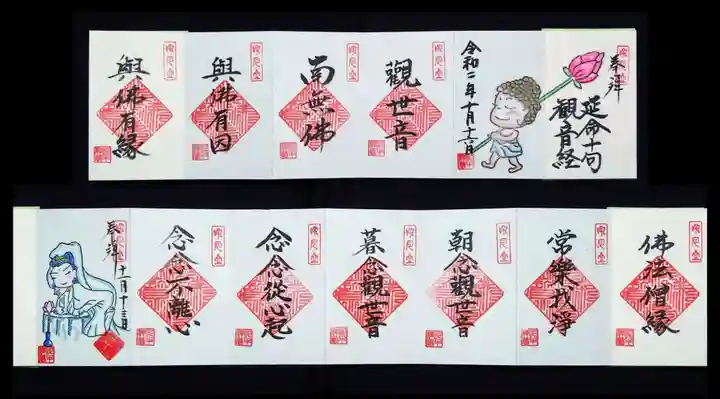 奉拝
延命十句
観音経
令和二年十月十二日
觀世音
南無佛
與佛有因
與佛有縁
佛法僧縁
常樂我淨
朝念觀世音
暮念觀世音
念念從心起
念念不離心
奉拝
十一月十三日